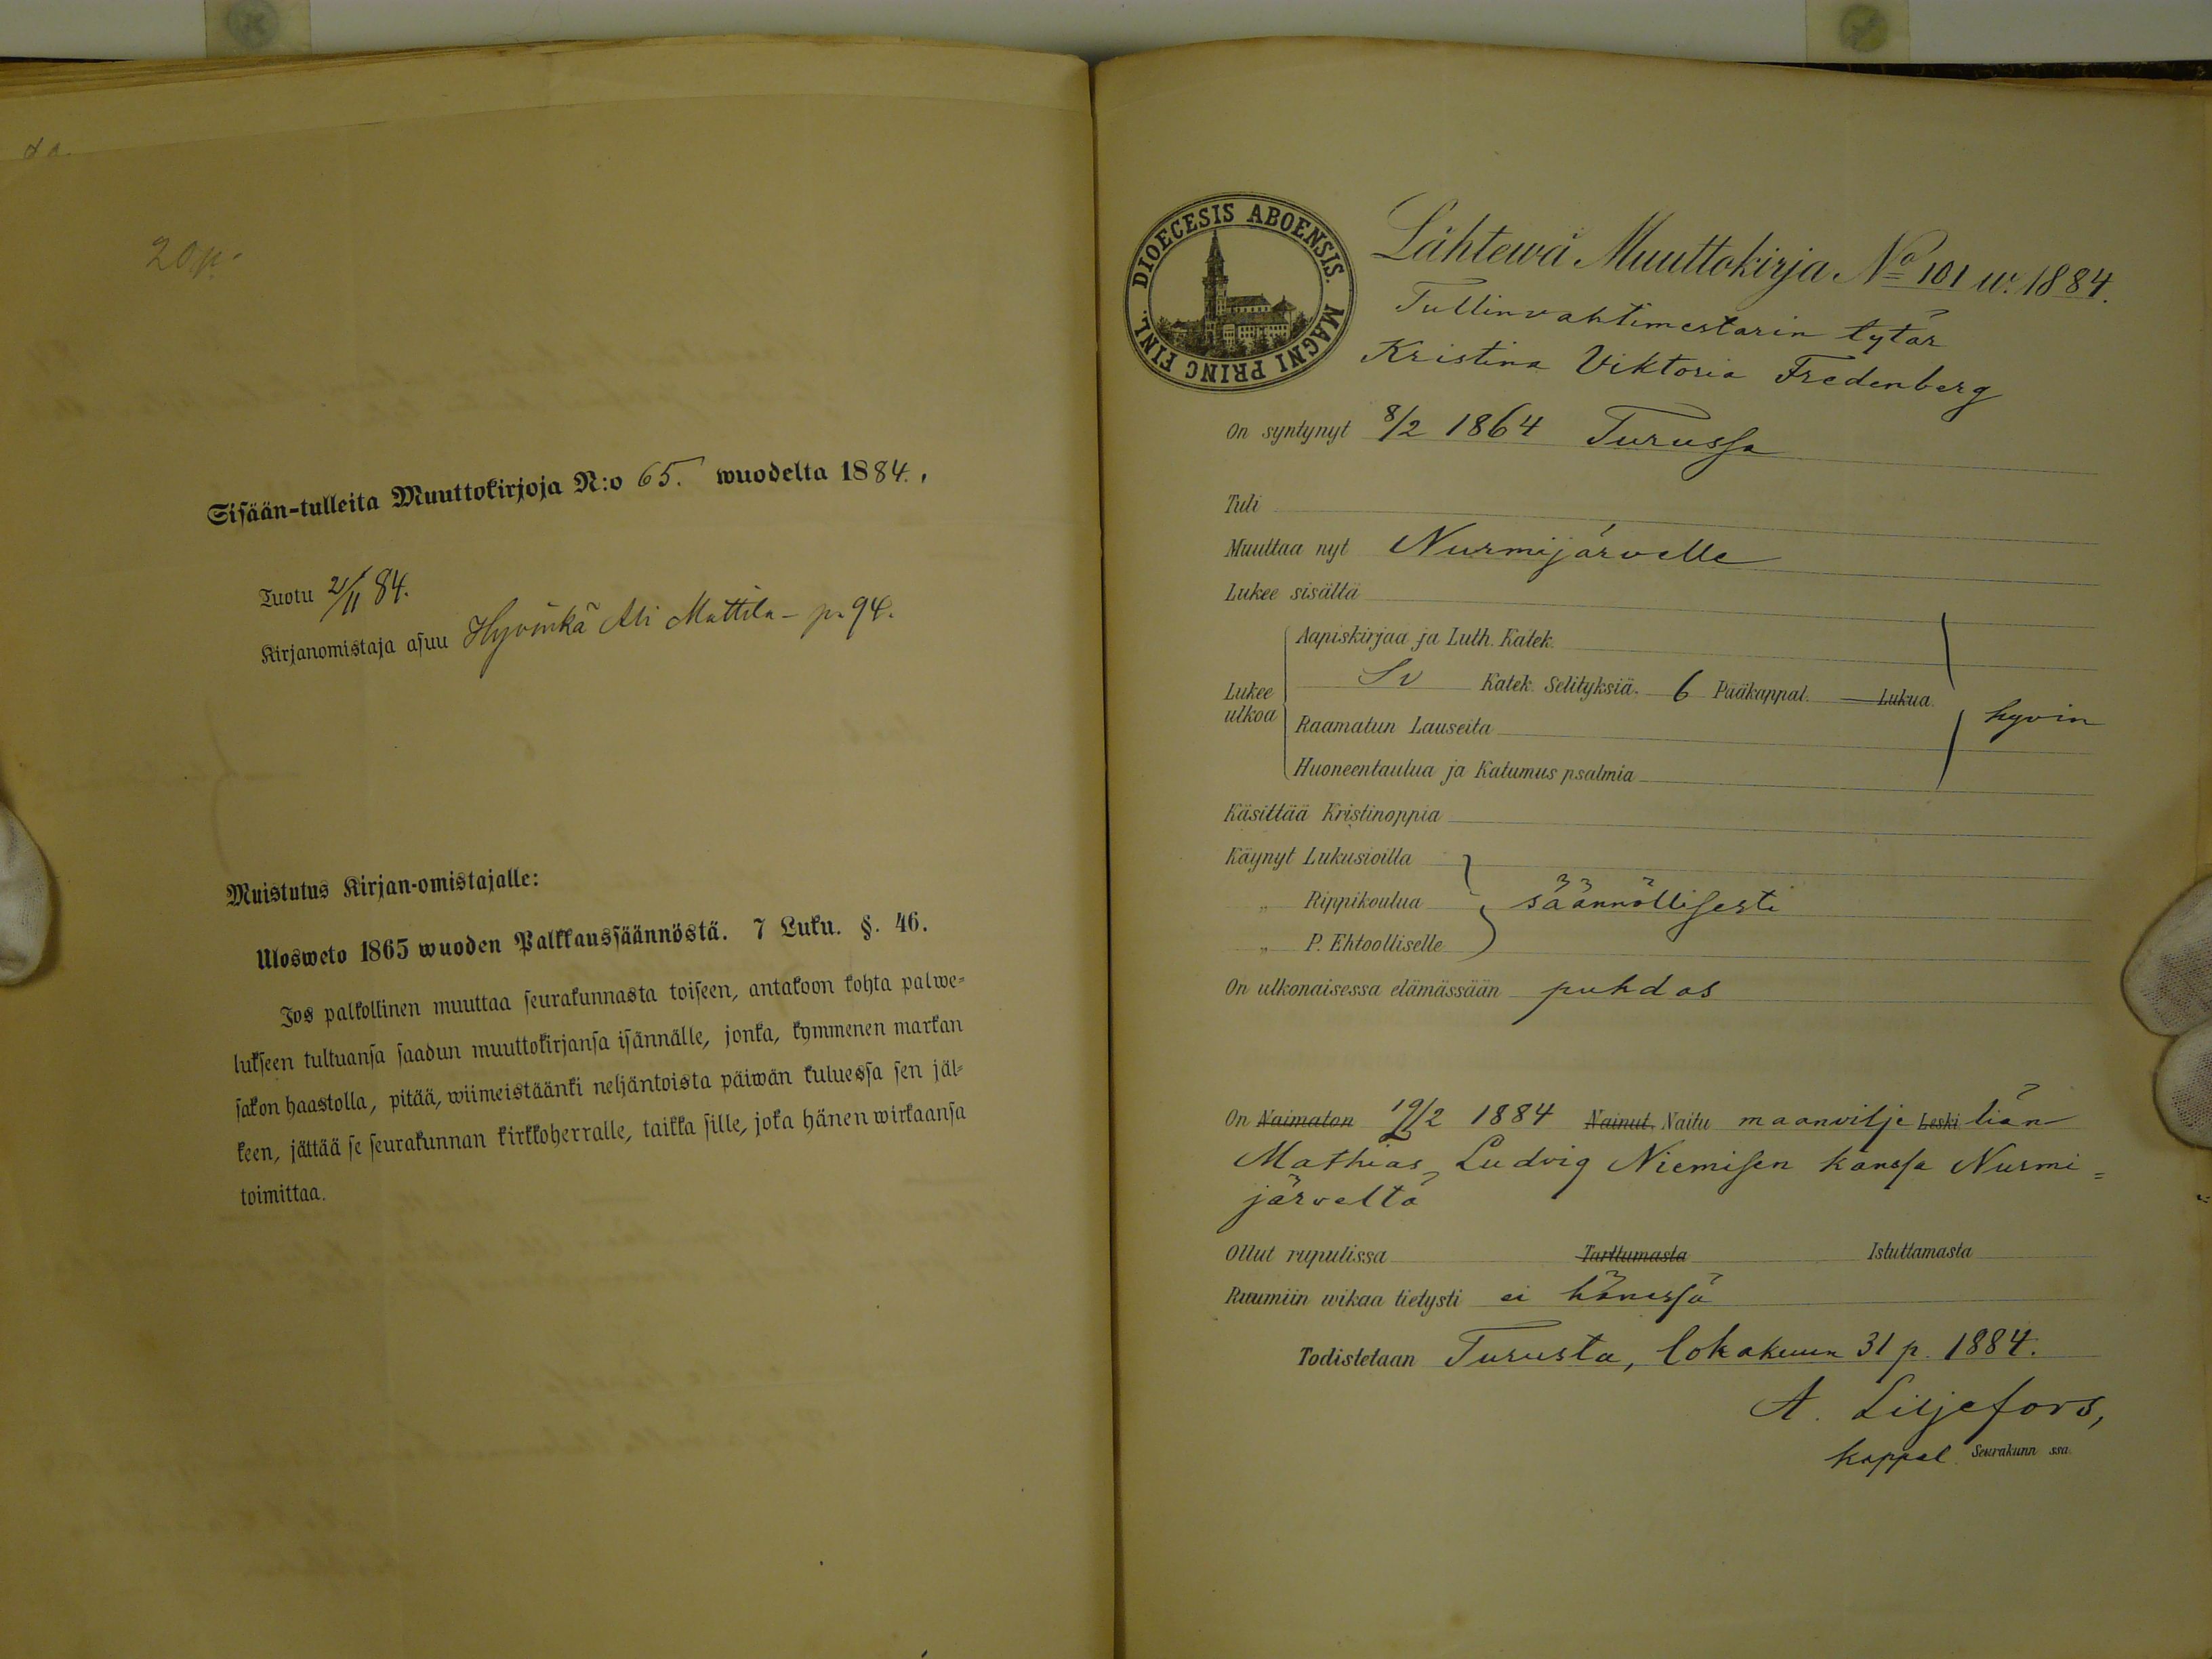 20 p.
Sisään-tulleita Muuttokirjoja N:o 65. wuodelta 1884.
Tuotu 2/11 84.
Kirjanomistaja asuu Hyvinkä Ali Mattila - p. 94.
Muistutus Kirjan-omistajalle:
Ulosweto 1865 wuoden Palkkaussäännöstä. 7 Luku. §. 46.
Jos palkollinen muuttaa seurakunnasta toiseen, antakoon kohta palwe-
lukseen tultuansa saadun muuttokirjansa isännälle, jonka, kymmenen markan
sakon haastolla, pitää, wiimeistäänki neljäntoista päiwän kuluessa sen jäl-
keen, jättää se seurakunnan kirkkoherralle, taikka sille, joka hänen wirkaansa
toimittaa.
DIOECESIS ABOENSIS. MAGNI PRINC FINL.
Lähtewä Muuttokirja No 101 w. 1884.
Tullinvahtimestarin tytär
Kristina Viktoria Fredenberg
On syntynyt 8/2 1864 Turussa
Tuli
Muuttaa nyt Nurmijärvelle
Lukee sisältä
Aapiskirjaa ja Luth. Katek.
Lukee ulkoa Sv Katek. Selityksiä. 6 Pääkappal. Lukua. hyvin
Raamatun Lauseita
Huoneentaulua ja Katumus psalmia
Käsittää Kristinoppia
Käynyt Lukusioilla
„ Rippikoulua säännöllisesti
„ P. Ehtoolliselle
On ulkonaisessa elämässään puhdas
On Naimaton 19/2 1884 Nainut, Naitu maanvilje Leski liän
Mathias Ludvig Niemisen kanssa Nurmi=
järveltä
Ollut rupulissa Tarttumasta Istuttamasta
Ruumiin wikaa tietysti ei hänessä
Todistetaan Turusta, lokakuun 31 p. 1884.
A. Liljefors,
kappal. Seurakunn ssa.